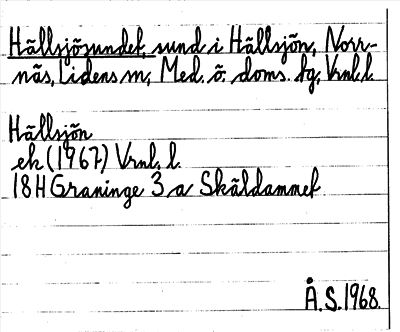 Hällsjösundet, sund i Hällsjön, Norr-
näs, Lidens sn, Med. ö. doms. fg, Vrnl. l.
Hällsjön
ek (1967) Vrnl. l.
18H Graninge 3 a Skäldammet
Å.S. 1968.